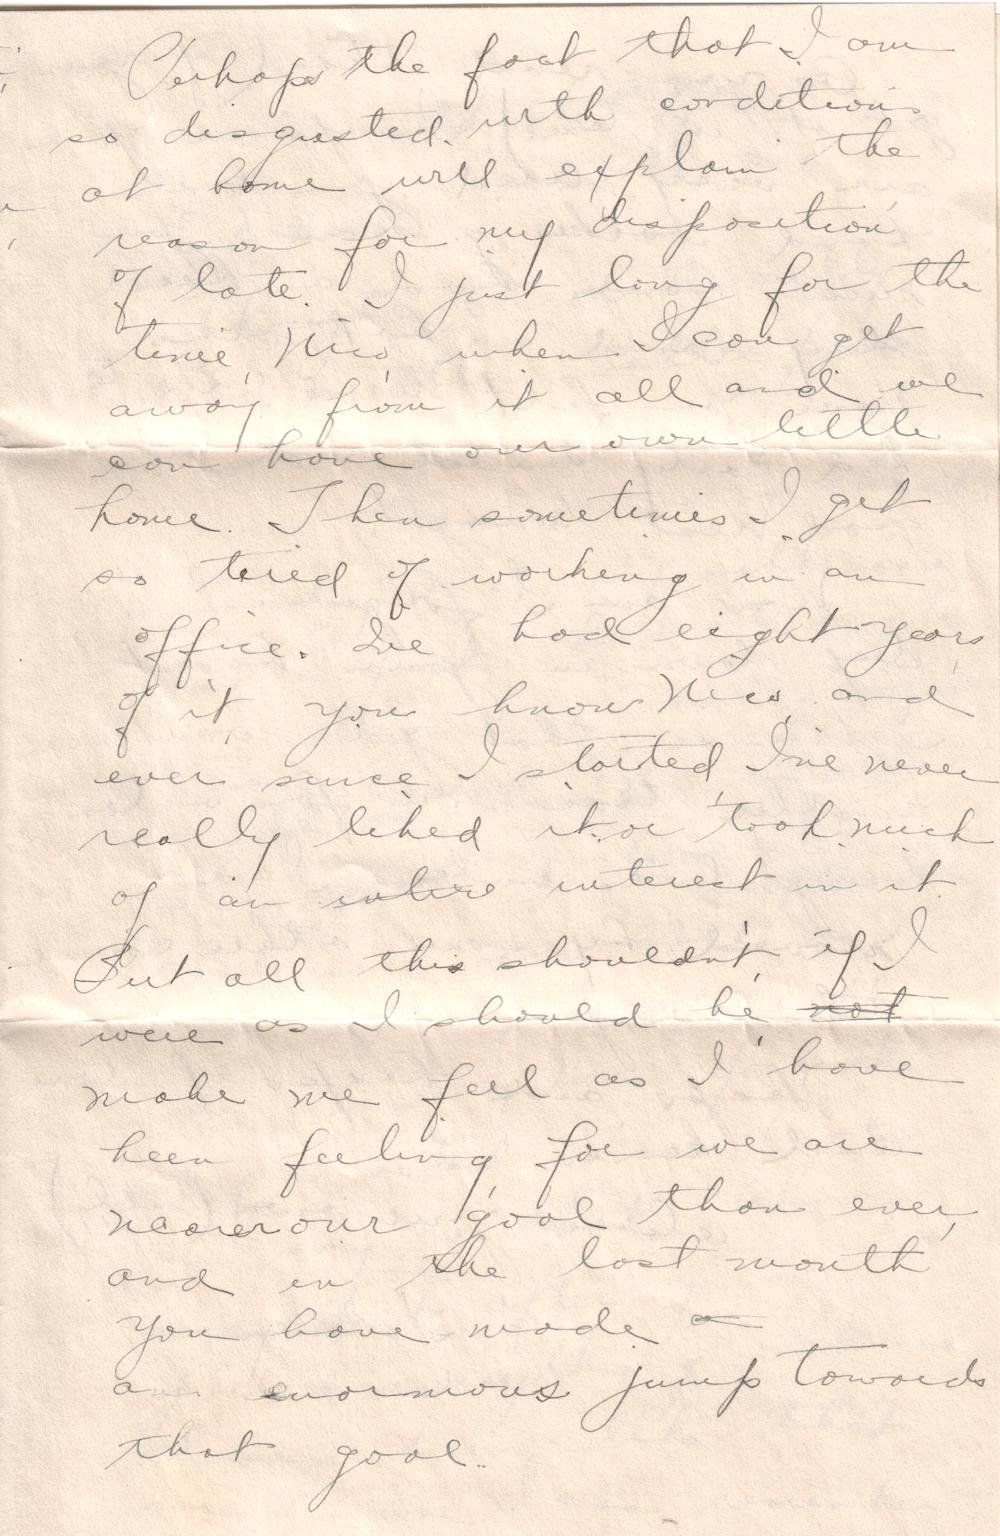 Perhaps the fact that I am
so disgusted with conditions
at home will explain the
reason for my disposition
of late. I just long for the
time, Nico, when I can get
away from it all and we
can have our own little
home. Then sometimes I get
so tired of working in an
office. I've had eight years
of it, you know Nico, and
ever since I started, I've never
really liked it or took much
of an interest in it.
But all this shouldn't, if I
were as I should be, not
make me feel as I have
been feeling, for we are
nearer our goal than ever,
and in the last month
you have made a
an enormous jump towards
that goal.